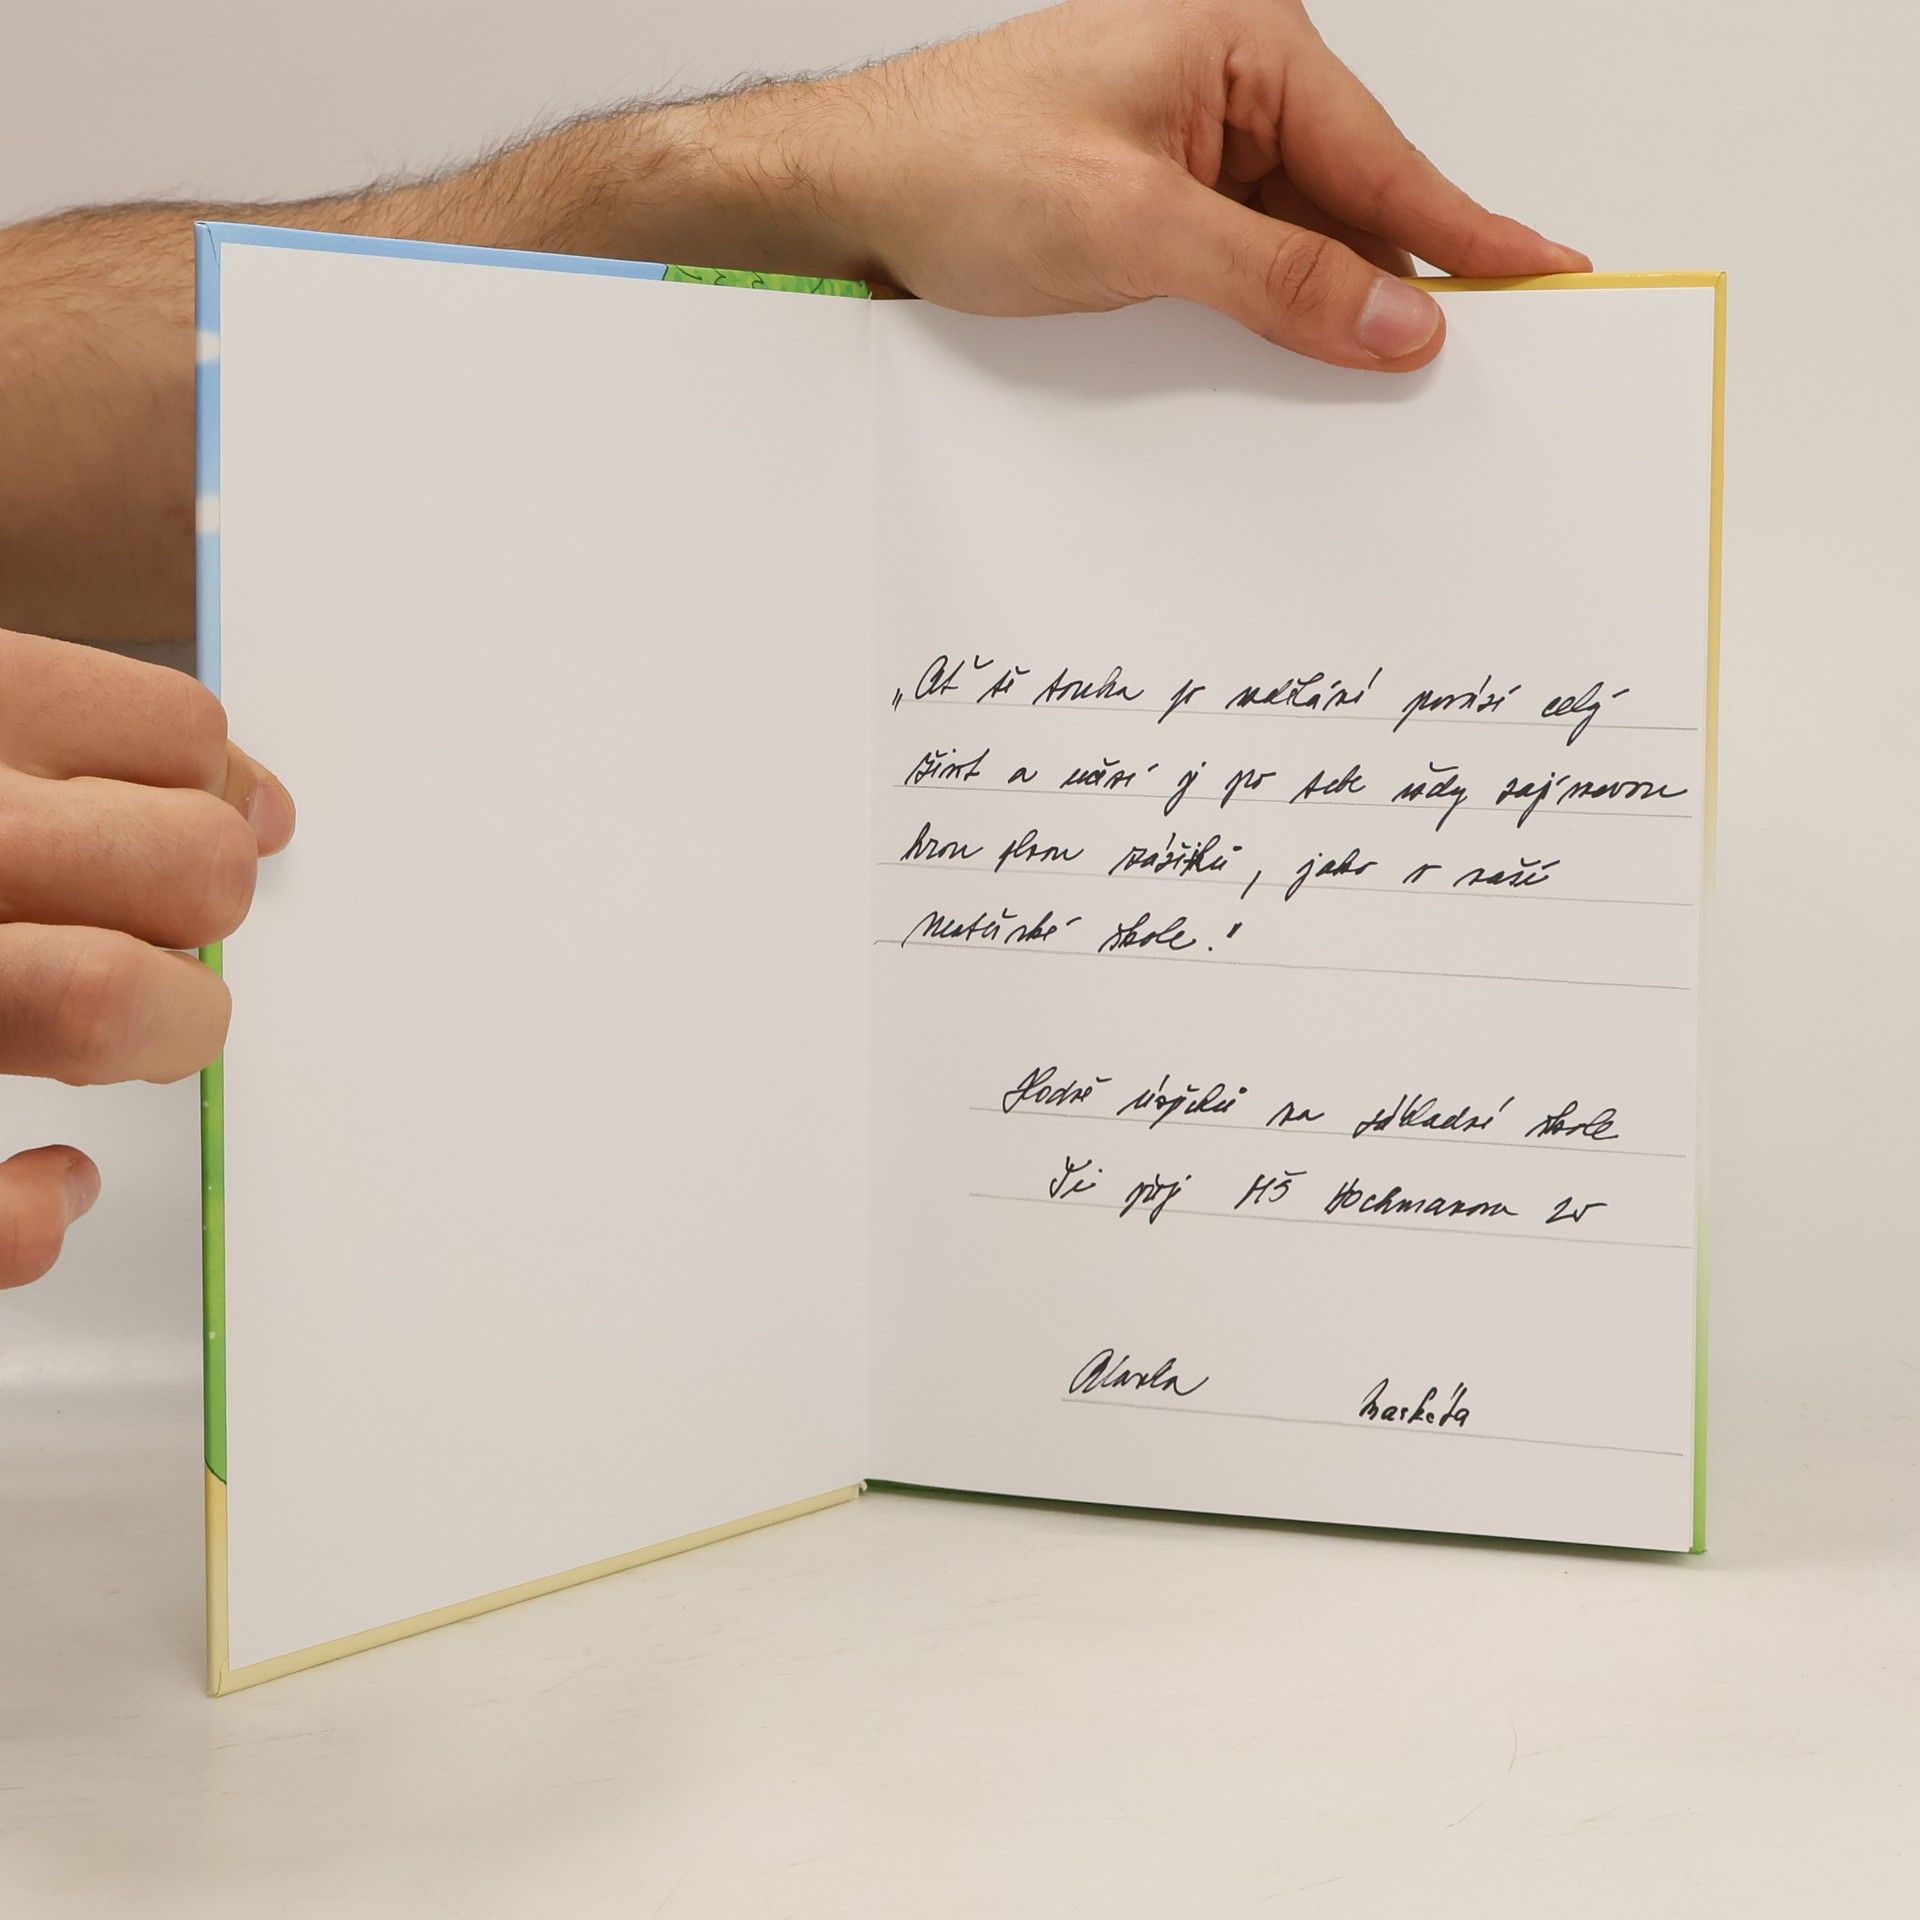 „Ať tě touha po vzdělání provází celý
život a učení ji pro tebe vždy zajímavou
hrou plnou zážitků, jako v naší
mateřské škole."
Hodně úspěchů na základní škole
Ti přejí MŠ Hochmanova 25
Markéta